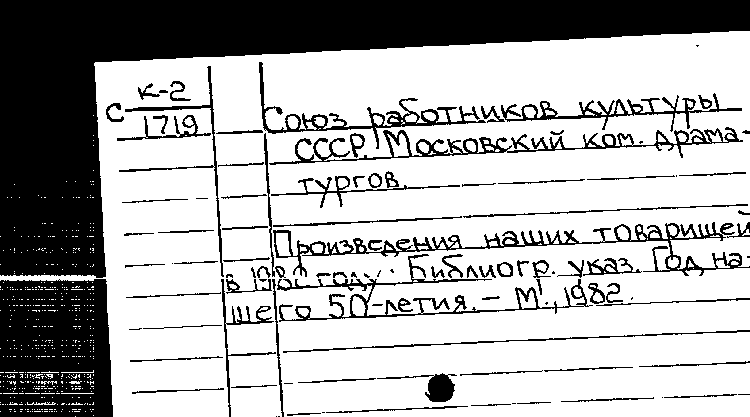 К-2
С
1719
Союз работников культуры
СССР. Московский ком. драма-
тургов.
Произведения наших товарищей
в 1982 году. Библиогр. указ. Год на-
шего 50-летия. - М., 1982.